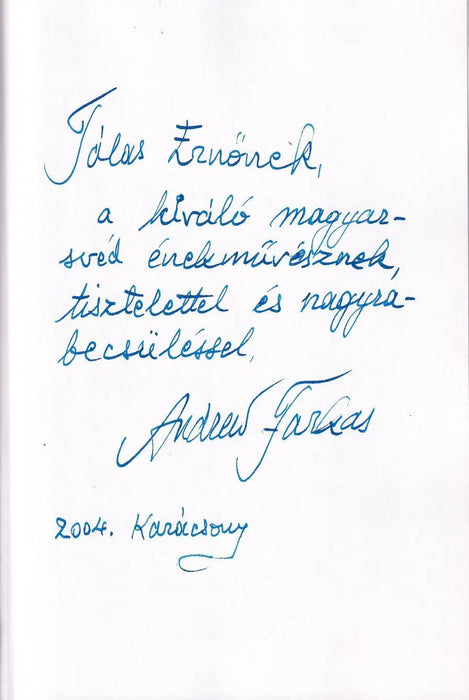 Tólas Ernőnek,
a kiváló magyar-
svéd énekművésznek,
tisztelettel és nagyra-
becsüléssel,
Andrew Farkas
2004. Karácsony